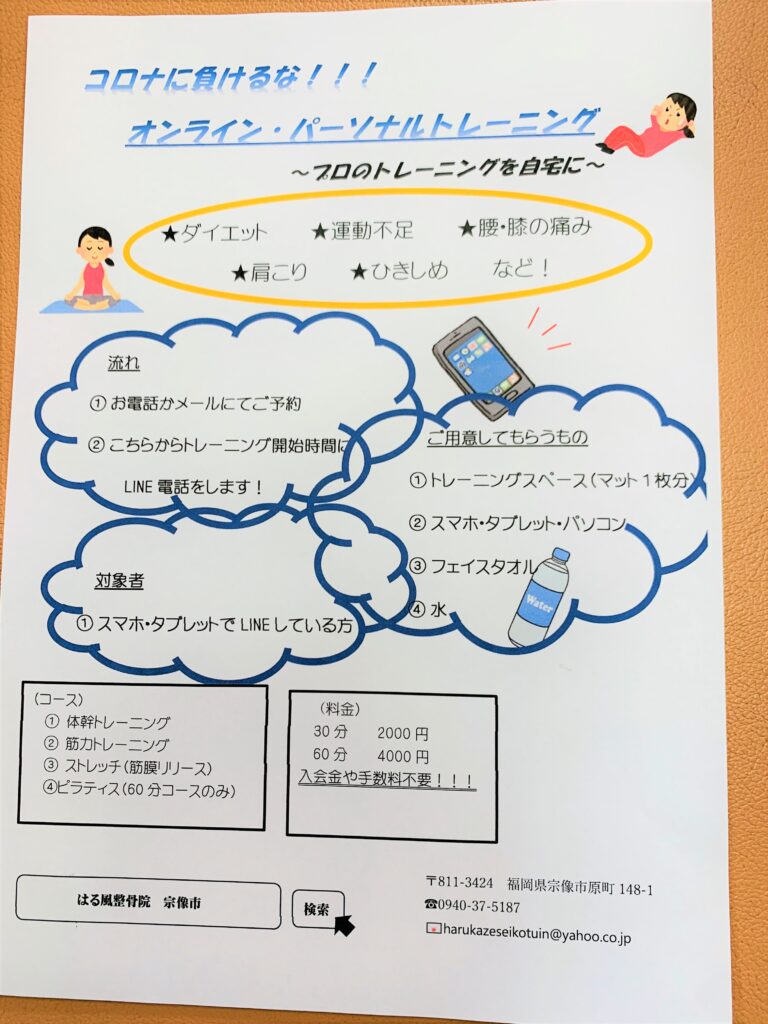 コロナに負けるな！！！
オンライン・パーソナルトレーニング
～プロのトレーニングを自宅に～
★ダイエット ★運動不足 ★腰・膝の痛み
★肩こり ★ひきしめ など！
流れ
① お電話かメールにてご予約
② こちらからトレーニング開始時間に
LINE 電話をします！
ご用意してもらうもの
① トレーニングスペース（マット１枚分）
② スマホ・タブレット・パソコン
③ フェイスタオル
④ 水
Water
対象者
① スマホ・タブレットで LINE している方
（コース）
① 体幹トレーニング
② 筋力トレーニング
③ ストレッチ（筋膜リリース）
④ピラティス（60 分コースのみ）
（料金）
30 分 2000 円
60 分 4000 円
入会金や手数料不要！！！
はる風整骨院 宗像市
検索
〒811-3424 福岡県宗像市原町 148-1
☎0940-37-5187
harukazeseikotuin@yahoo.co.jp